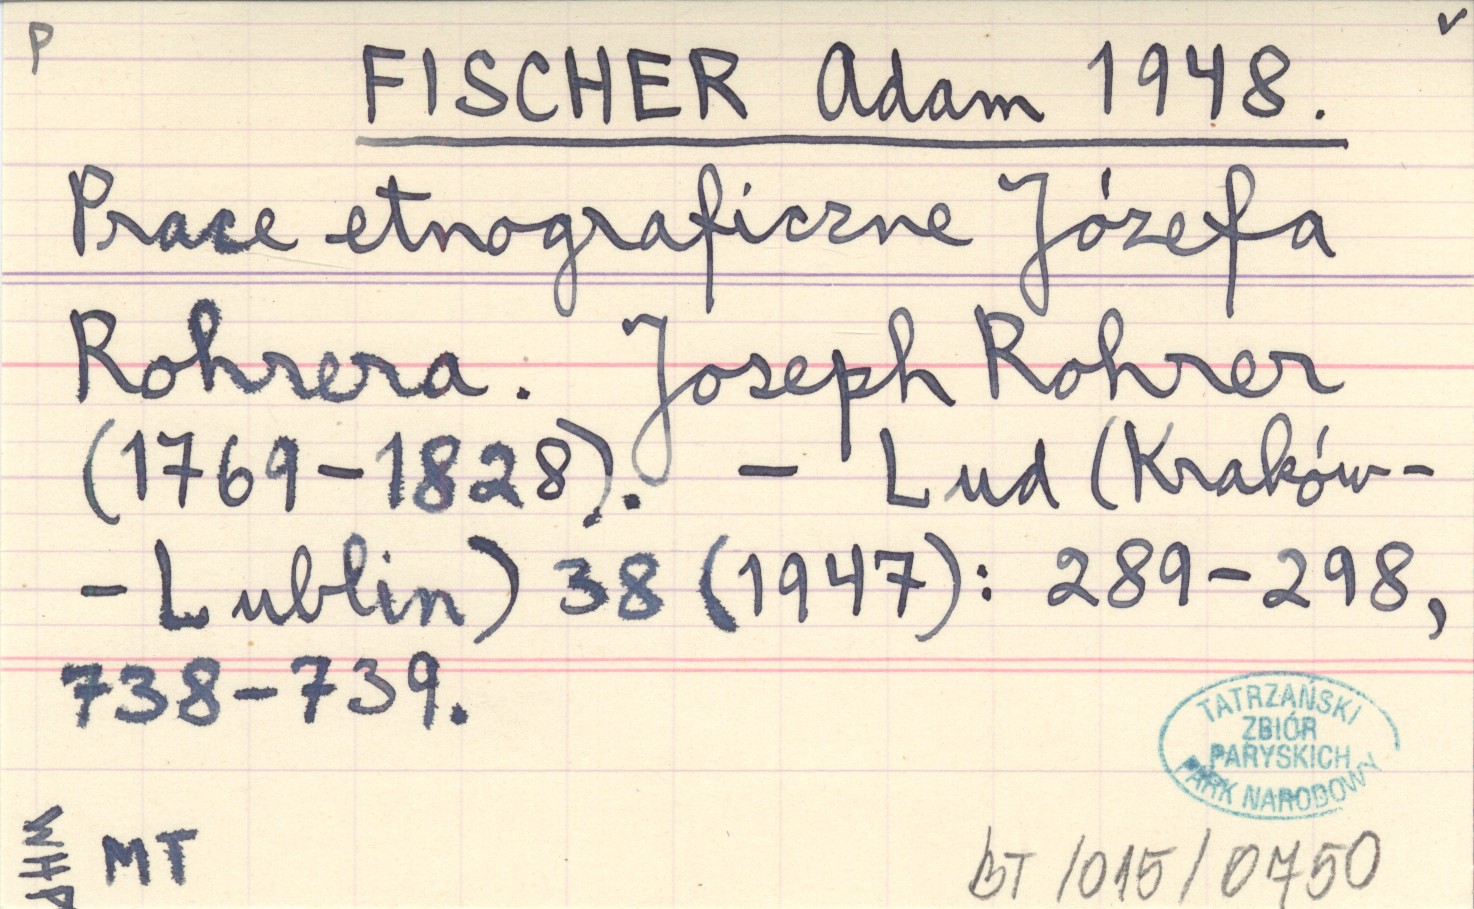 P
FISCHER Adam 1948.
Prace etnograficzne Józefa
Rohrera. Joseph Rohrer
(1769-1828). - Lud (Kraków-
-Lublin) 38 (1947): 289-298,
738-739.
TATRZAŃSKI
ZBIÓR
PARYSKICH
PARK NARODOWY
WHP
MT
BT/015/0750